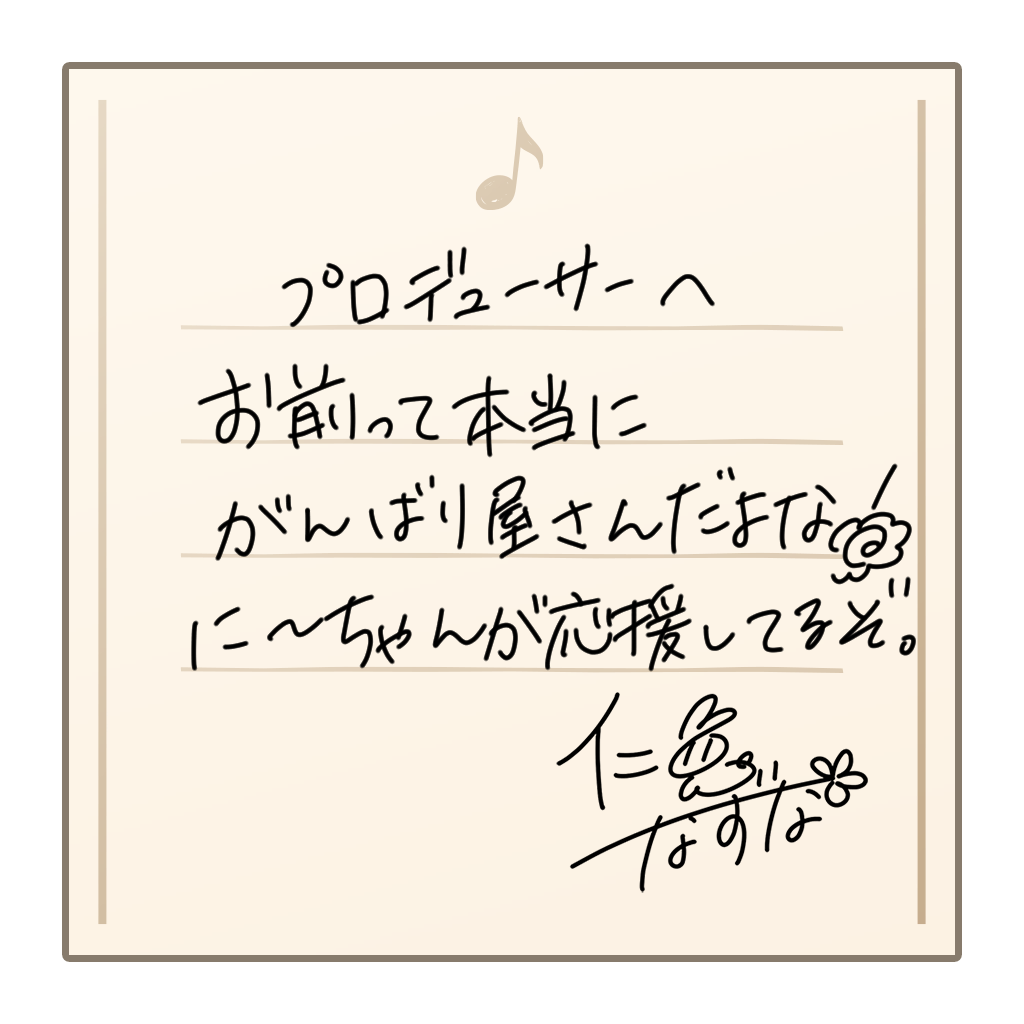 プロデューサーへ
お前って本当に
がんばり屋さんだよな
に〜ちゃんが応援してるぞ。
仁兎
なずな